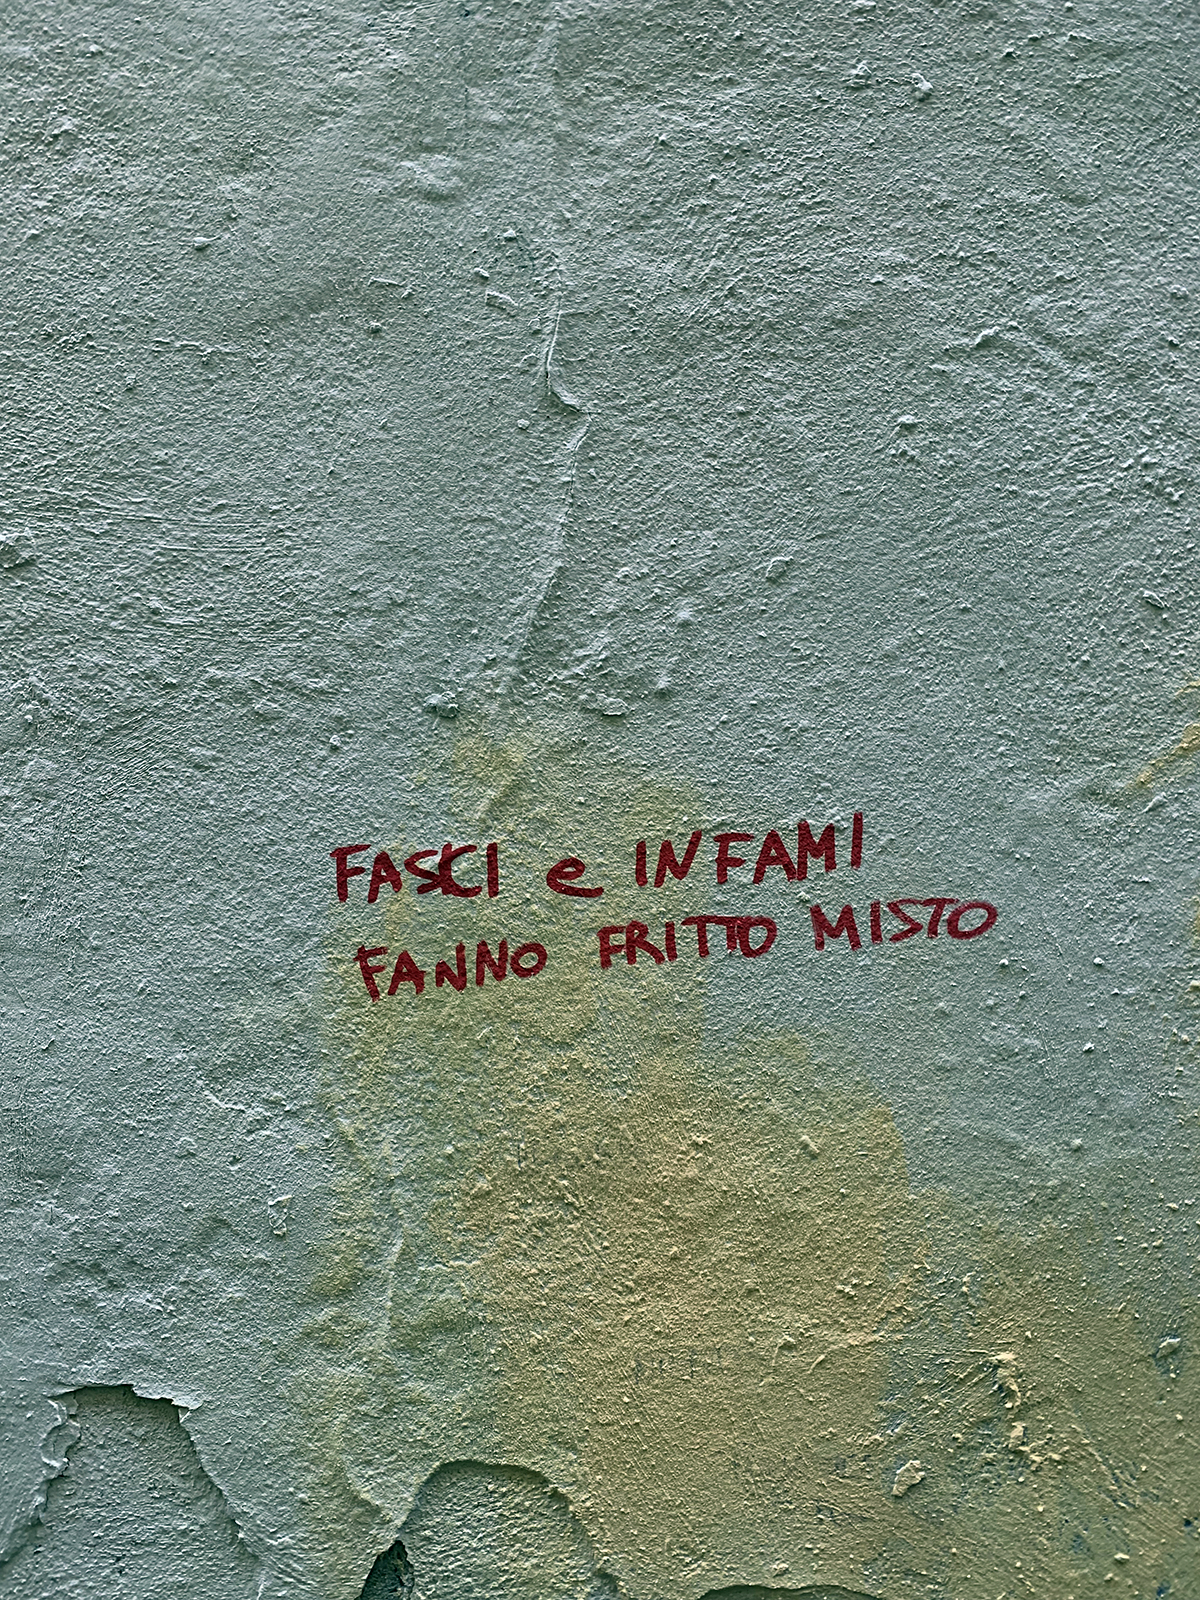 FASCI e INFAMI
FANNO FRITTO MISTO